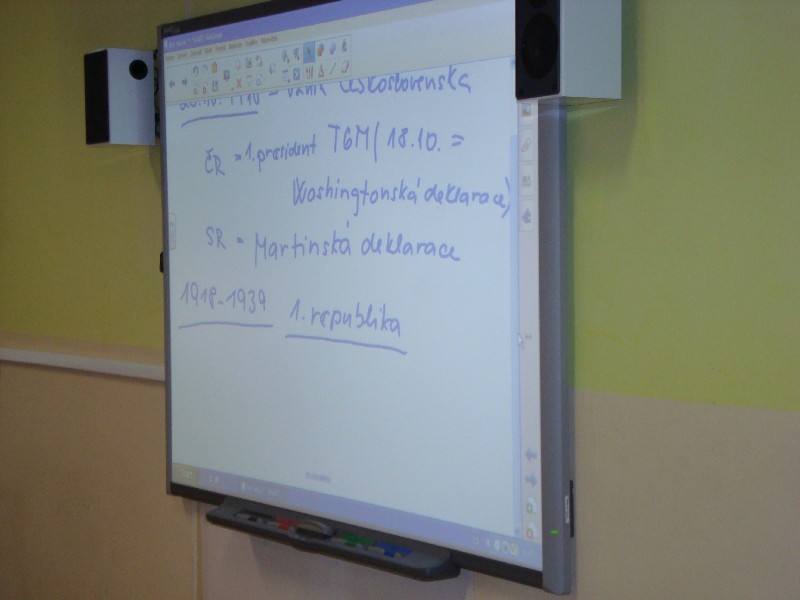 28.10.1918 = vznik Československa
ČR = 1. president TGM (18.10. =
Washingtonská deklarace)
SR = Martinská deklarace
1918-1939 1. republika